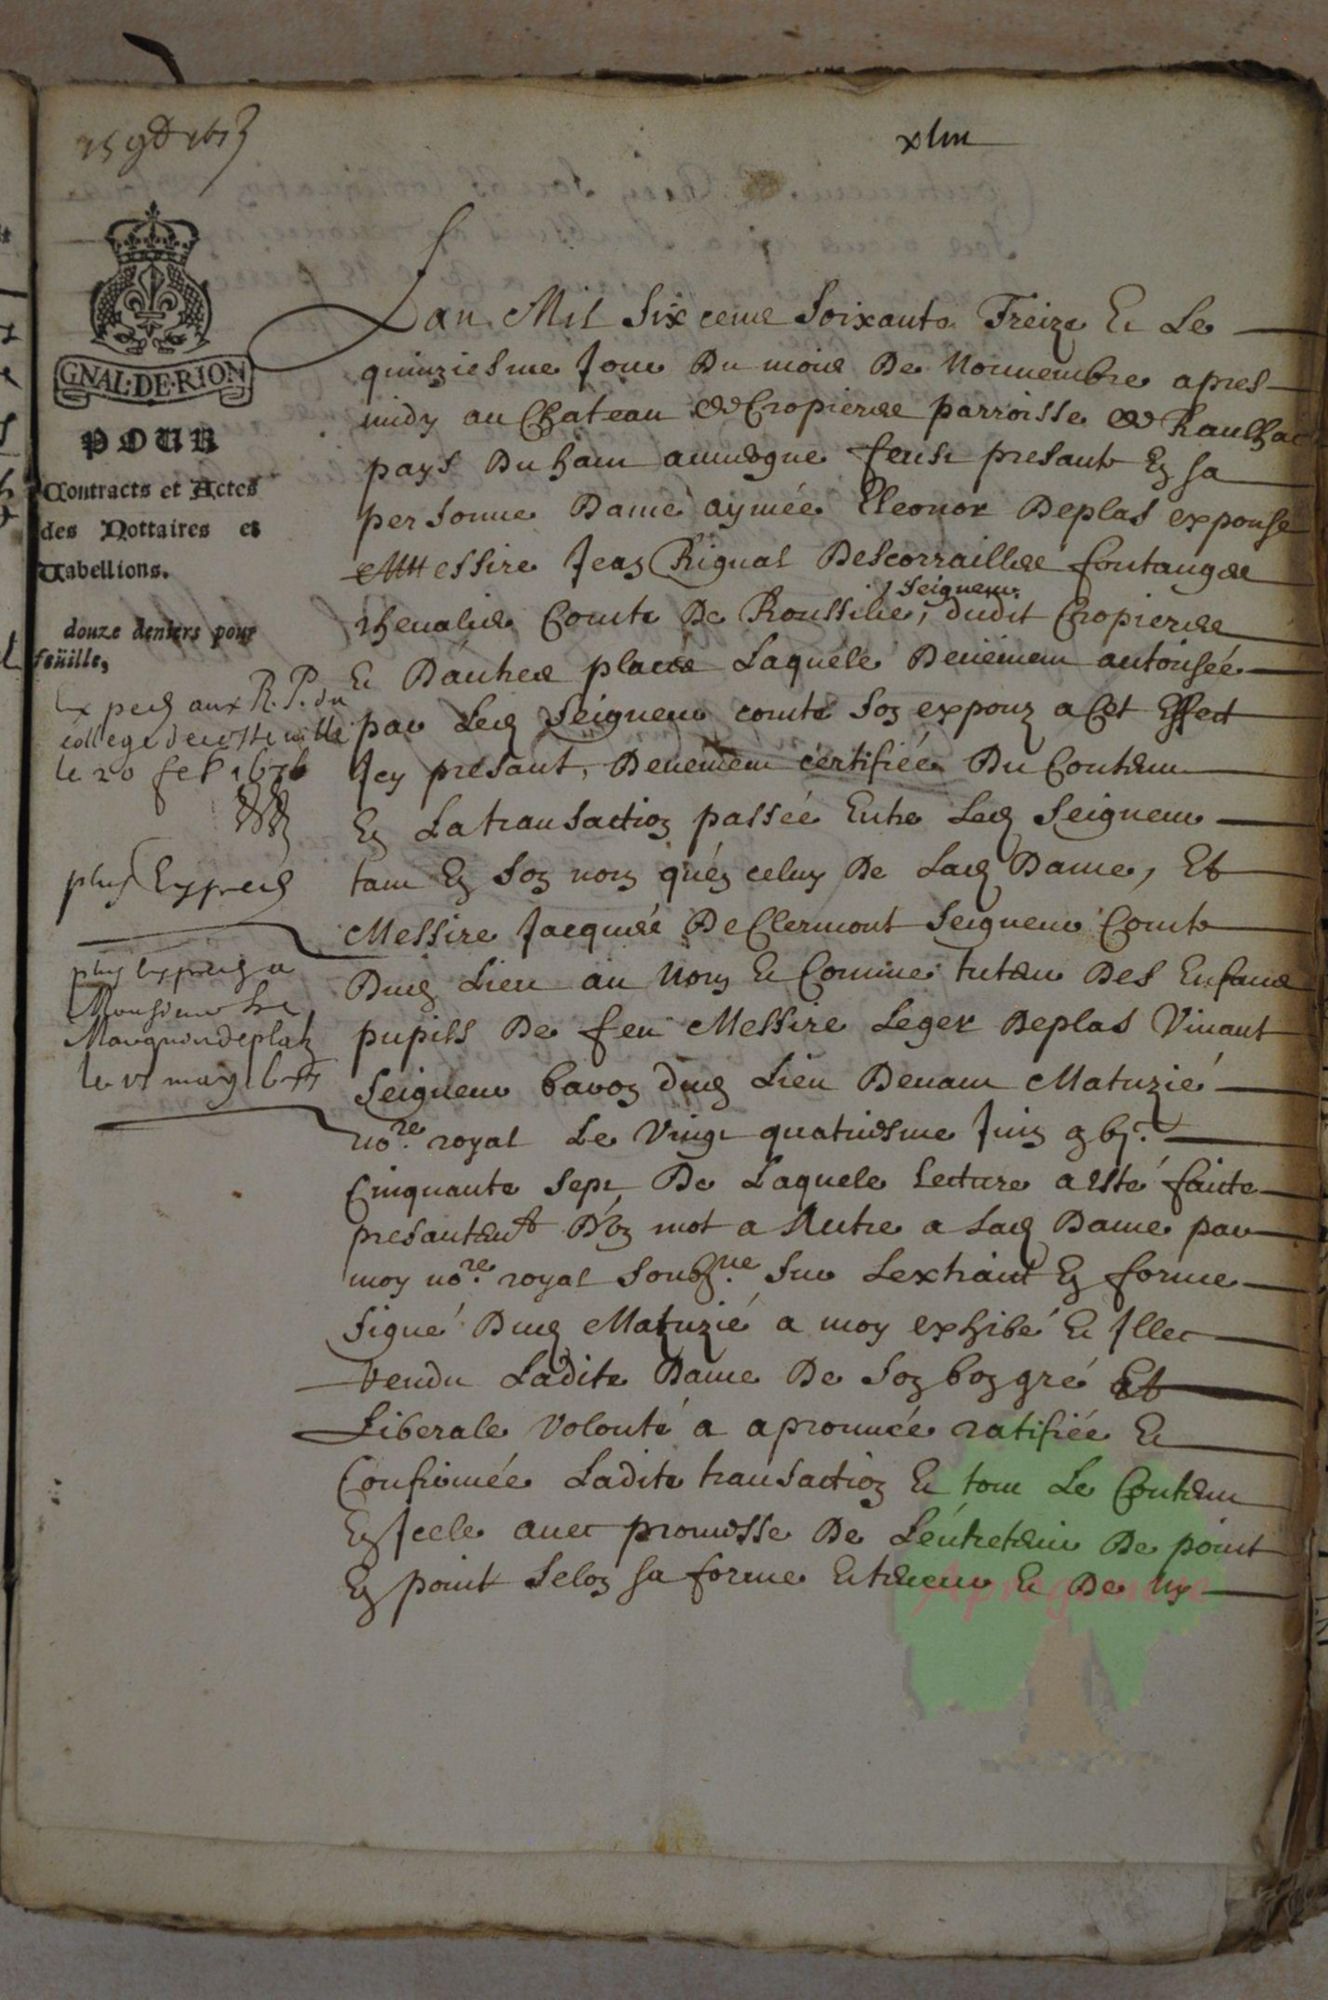 15 9b 1673
xliii
GNAL·DE·RION
POUR
Contracts et Actes
des Nottaires et
Tabellions.
douze deniers pour
feüille,
Exped aux R. P. du
college de cette ville
le 20 feb 1676
plus Exped
plus exped a
Monsieur le
Marquis deplas
le may
Lan Mil Six cens Soixante Treize Et Le
quinziesme Jour Du mois De Nouuembre apres
midy au Chateau de Cropieres parroisse de Raulhac
pays Du haut auuergne feust presante En sa
personne Dame aymée Eleonor Deplas expouse
a Messire Jean Rigual Descorrailles fontanges
cheualier Comte De Roussilie, Seigneur dudit Cropieres
Et Dautres places Laquele Deüement autorisée
par Led Seigneur comte Son expoux a Cet Effect
Icy presant, Deuement certifiée Du Contenu
En La transaction passée Entre Led Seigneur
tant En Son nom qu'en celuy De Lad Dame, Et
Messire Jacques De Clermont Seigneur Comte
Dud Lieu au Nom Et Comme tuteur Des Enfans
pupills De feu Messire Leger Deplas Viuant
Seigneur baron dud Lieu Deuant Matuzié
no.re royal Le Vingt quatriesme Juin
Cinquante Sept De Laquele Lecture a Esté faicte
presantem.t D'un mot a Autre a Lad Dame par
moy no.re royal Soubz.ne Sur Lextraict En forme
Signé Dud Matuzié a moy exhibé Et Illec
Rendu Ladite Dame De Son bon gré Et
Liberale Volonté a aprouuée ratifiée Et
Confirmée Ladite transaction Et tout Le Contenu
En Icele auec promesse De L'entretenir De point
En point Selon sa forme Et teneur Et De Ny
Aprogemere